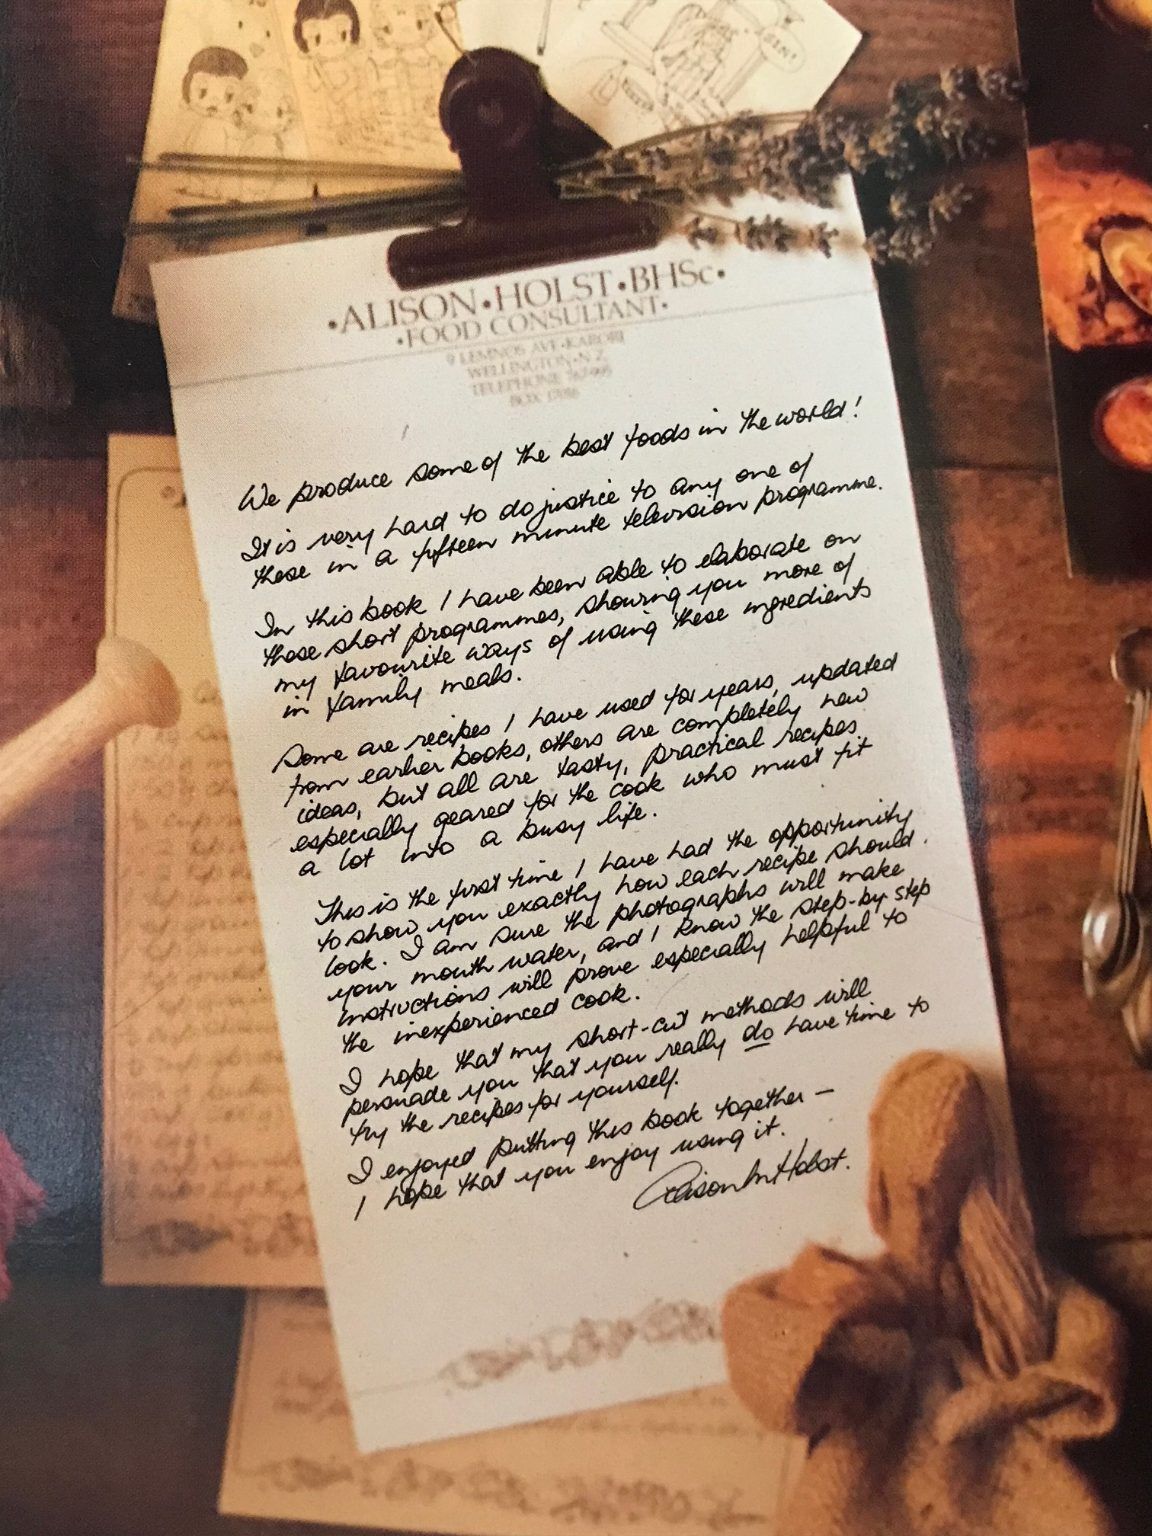 •ALISON•HOLST•BHSc•
•FOOD CONSULTANT•
9 LEMNOS AVE•KARORI
WELLINGTON•N.Z.
TELEPHONE
BOX
We produce some of the best foods in the world!
It is very hard to do justice to any one of
these in a fifteen minute television programme.
In this book I have been able to elaborate on
those short programmes, showing you more of
my favourite ways of using these ingredients
in family meals.
Some are recipes I have used for years, updated
from earlier books, others are completely new
ideas, but all are tasty, practical recipes
especially geared for the cook who must fit
a lot into a busy life.
This is the first time I have had the opportunity
to show you exactly how each recipe should
look. I am sure the photographs will make
your mouth water, and I know the step-by step
instructions will prove especially helpful to
the inexperienced cook.
I hope that my short-cut methods will
persuade you that you really do have time to
try the recipes for yourself.
I enjoyed putting this book together –
I hope that you enjoy using it.
Alison M Holst.